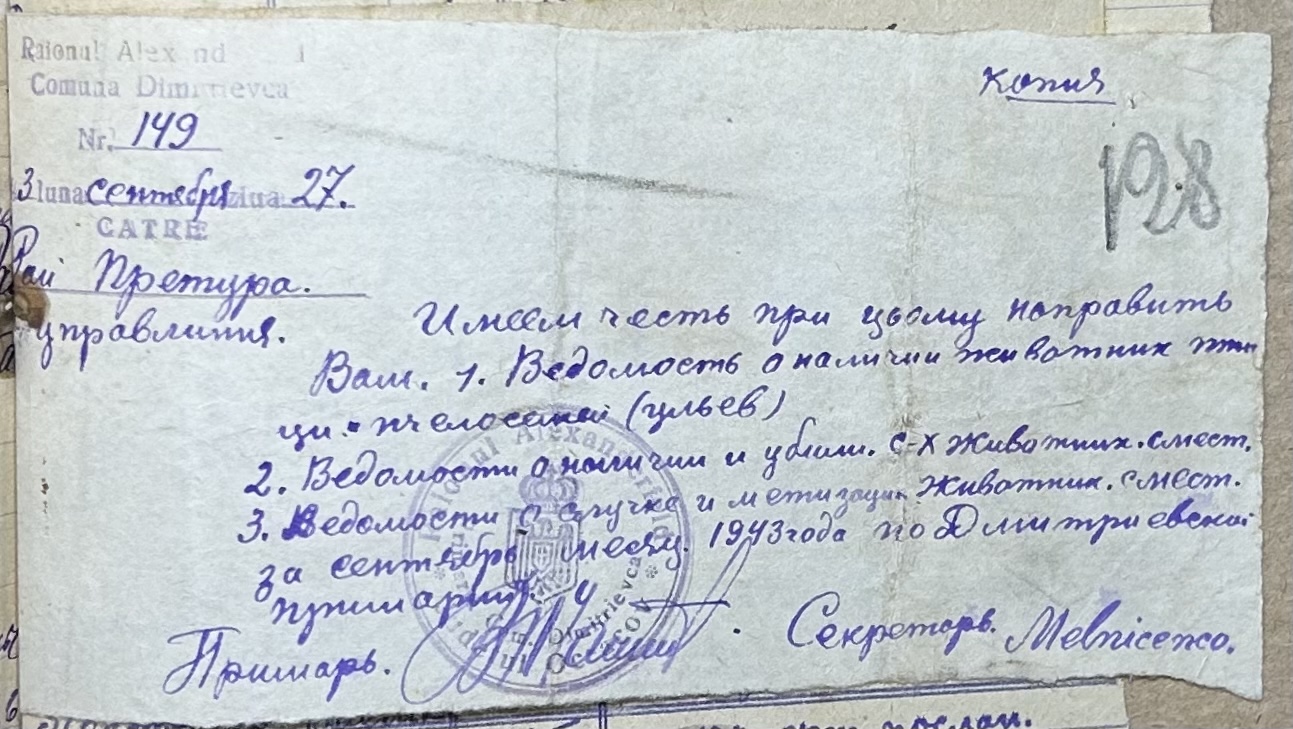 Raionul Alex nd i
Comuna Dimitrievca
Nr. 149
3 luna сентября ziua 27.
CATRE
Рай Претура.
управлиния.
копия
128
Имеем честь при цьому направить
Вам. 1. Ведомость о наличии животних пти
ци. пчелосемей (ульев)
2. Ведомости о наличии и убыли. с-х животних. смест.
3. Ведомости о случке и метизации животних. смест.
за сентябрь месяц. 1943 года по Дмитриевской
примарии.
Примарь.
Секретарь. Melnicenco.
Raionul Alexanderfeld
Dimitrievca